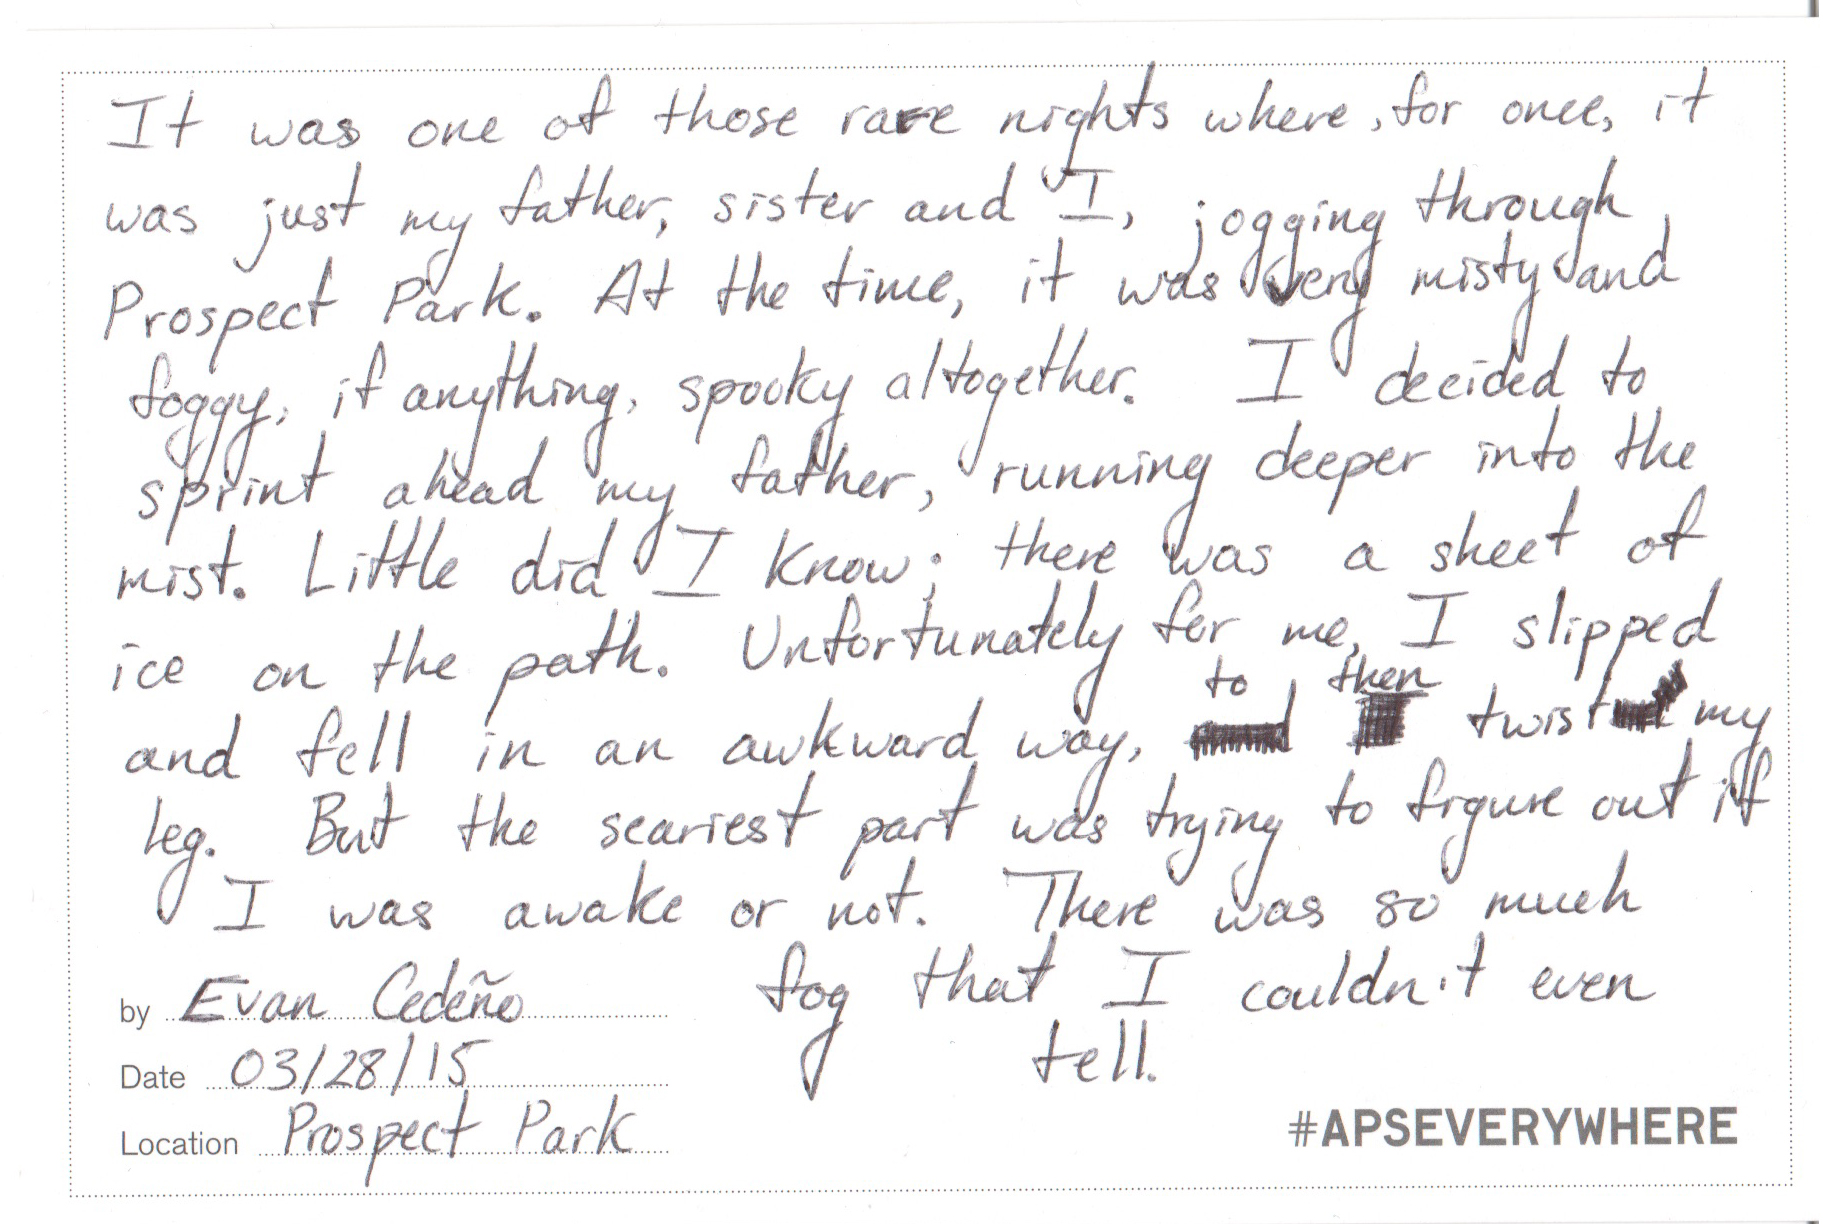 It was one of those rare nights where, for once, it
was just my father, sister and I, jogging through
Prospect Park. At the time, it was very misty and
foggy, if anything, spooky altogether. I decided to
sprint ahead my father, running deeper into the
mist. Little did I know; there was a sheet of
ice on the path. Unfortunately for me, I slipped
and fell in an awkward way, to then twist my
leg. But the scariest part was trying to figure out if
I was awake or not. There was so much
fog that I couldn't even
tell.
by Evan Cedeño
Date 03/28/15
Location Prospect Park
#APSEVERYWHERE